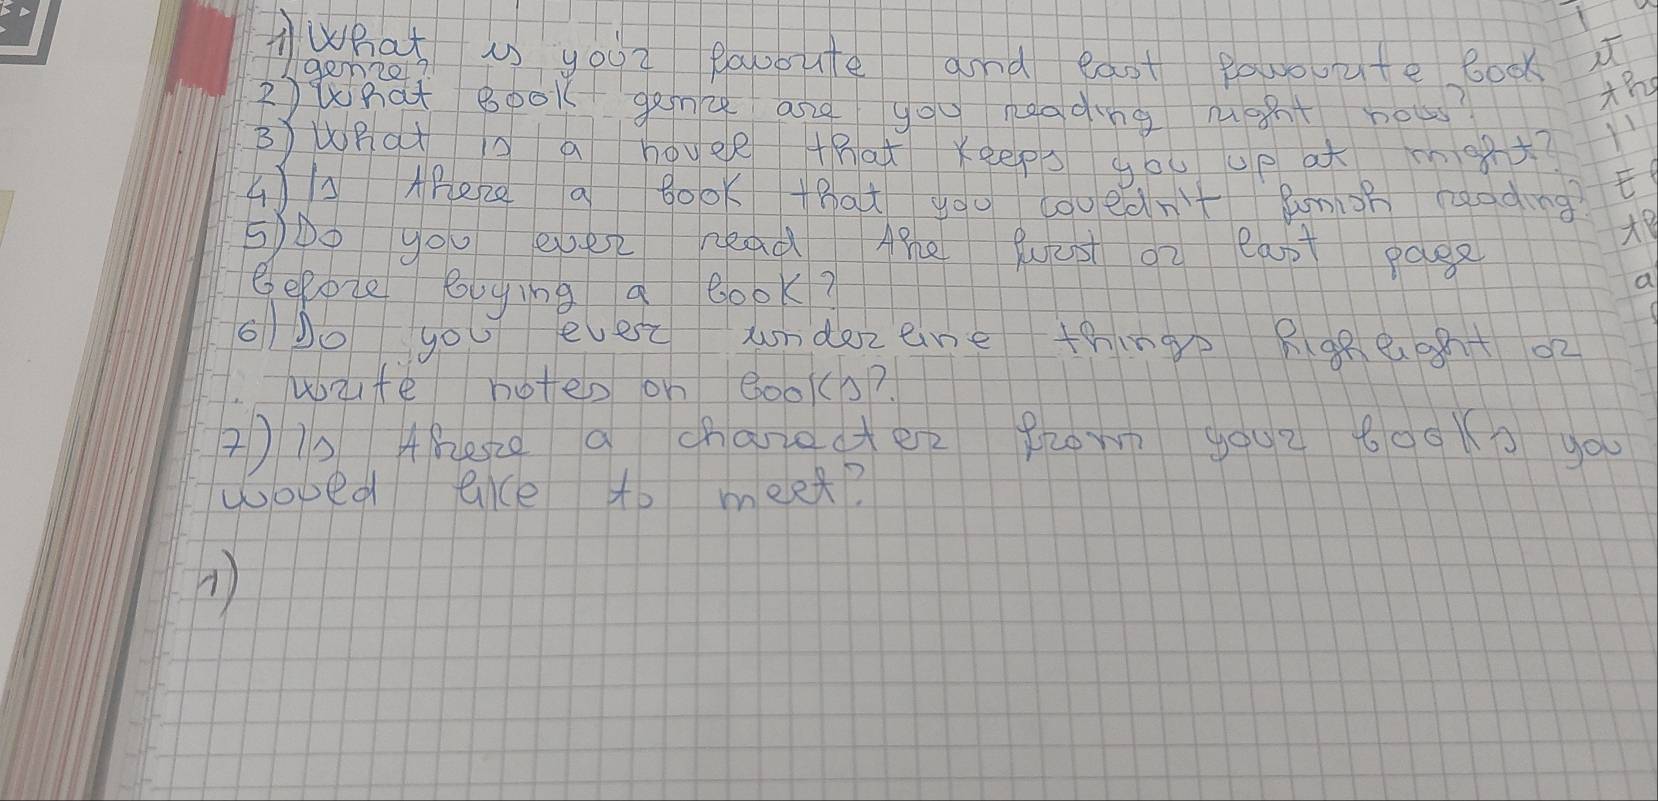 1) What is your favourite and last favourite book
genre?
2) What book genre are you reading right now?
3) What is a novel that keeps you up at night?
4) Is there a book that you couldn't finish reading?
5) Do you ever read the first or last page
before buying a book?
6) Do you ever underline things highlight or
write notes on books?
7) Is there a character from your books you
would like to meet?
1)